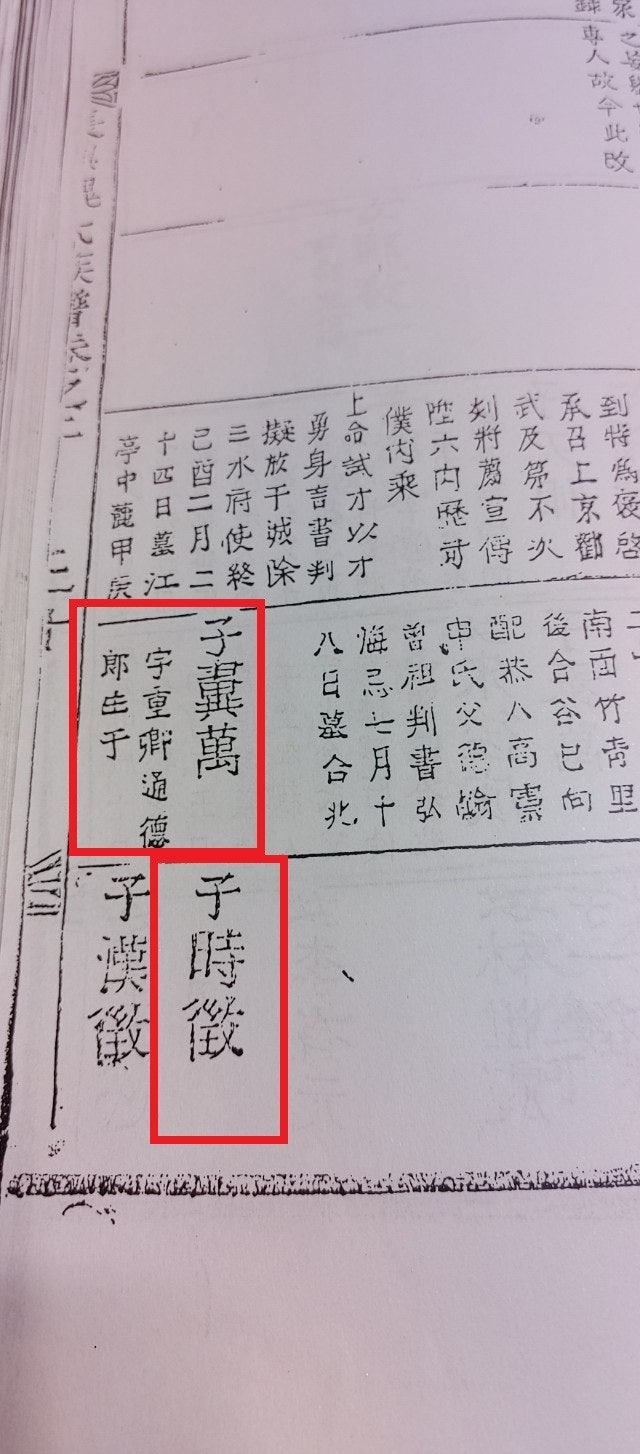 專人故今此改
到特為褒啓
承召上京勸
武及第不次
刻將薦宣傳
陞六內歷司
僕內乘
上命試才以才
勇身言書判
擬放干城除
三水府使終
己酉二月二
十四日墓江
亭中麓甲庚
南面竹靑里
後合谷巳向
配恭人高靈
申氏父德翰
曾祖判書弘
海忌七月十
八日墓合北
子冀萬
字重卿通德
郎生于
子時徵
子漢徵